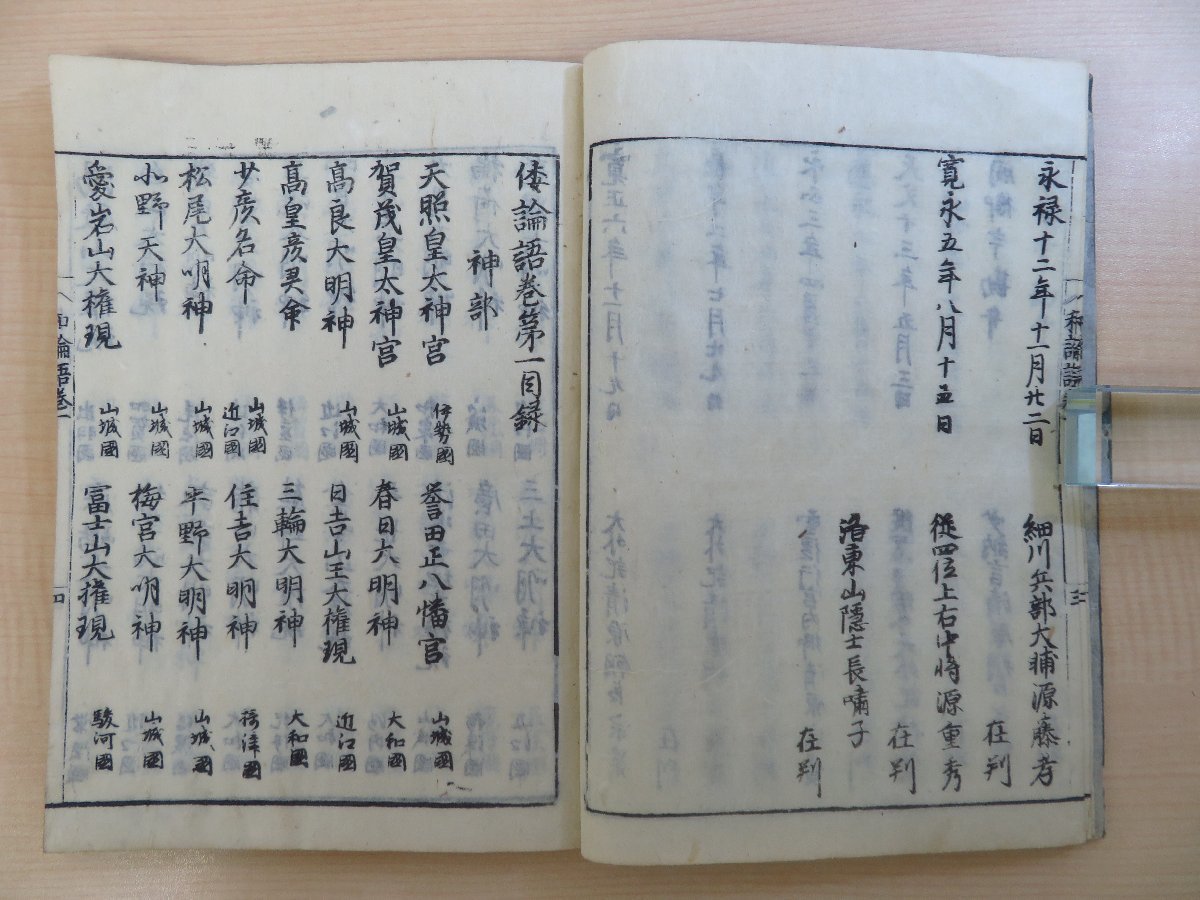 永禄十二年十一月廿二日
細川兵部大輔源藤孝
在判
寛永五年八月十五日
従四位上右中将源重秀
在判
洛東山隠士長嘯子
在判
倭論語巻第一目録
神部
天照皇太神宮 伊勢國
誉田正八幡宮 山城國
賀茂皇太神宮 山城國
春日大明神 大和國
高良大明神 山城國
日吉山王大権現 近江國
高皇産灵命
三輪大明神 大和國
少彦名命 山城國 近江國
住吉大明神 摂津國
松尾大明神 山城國
平野大明神 山城國
小野天神 山城國
梅宮大明神 山城國
愛岩山大権現 山城國
冨士山大権現 駿河國
和論語巻一
四
和論語
三